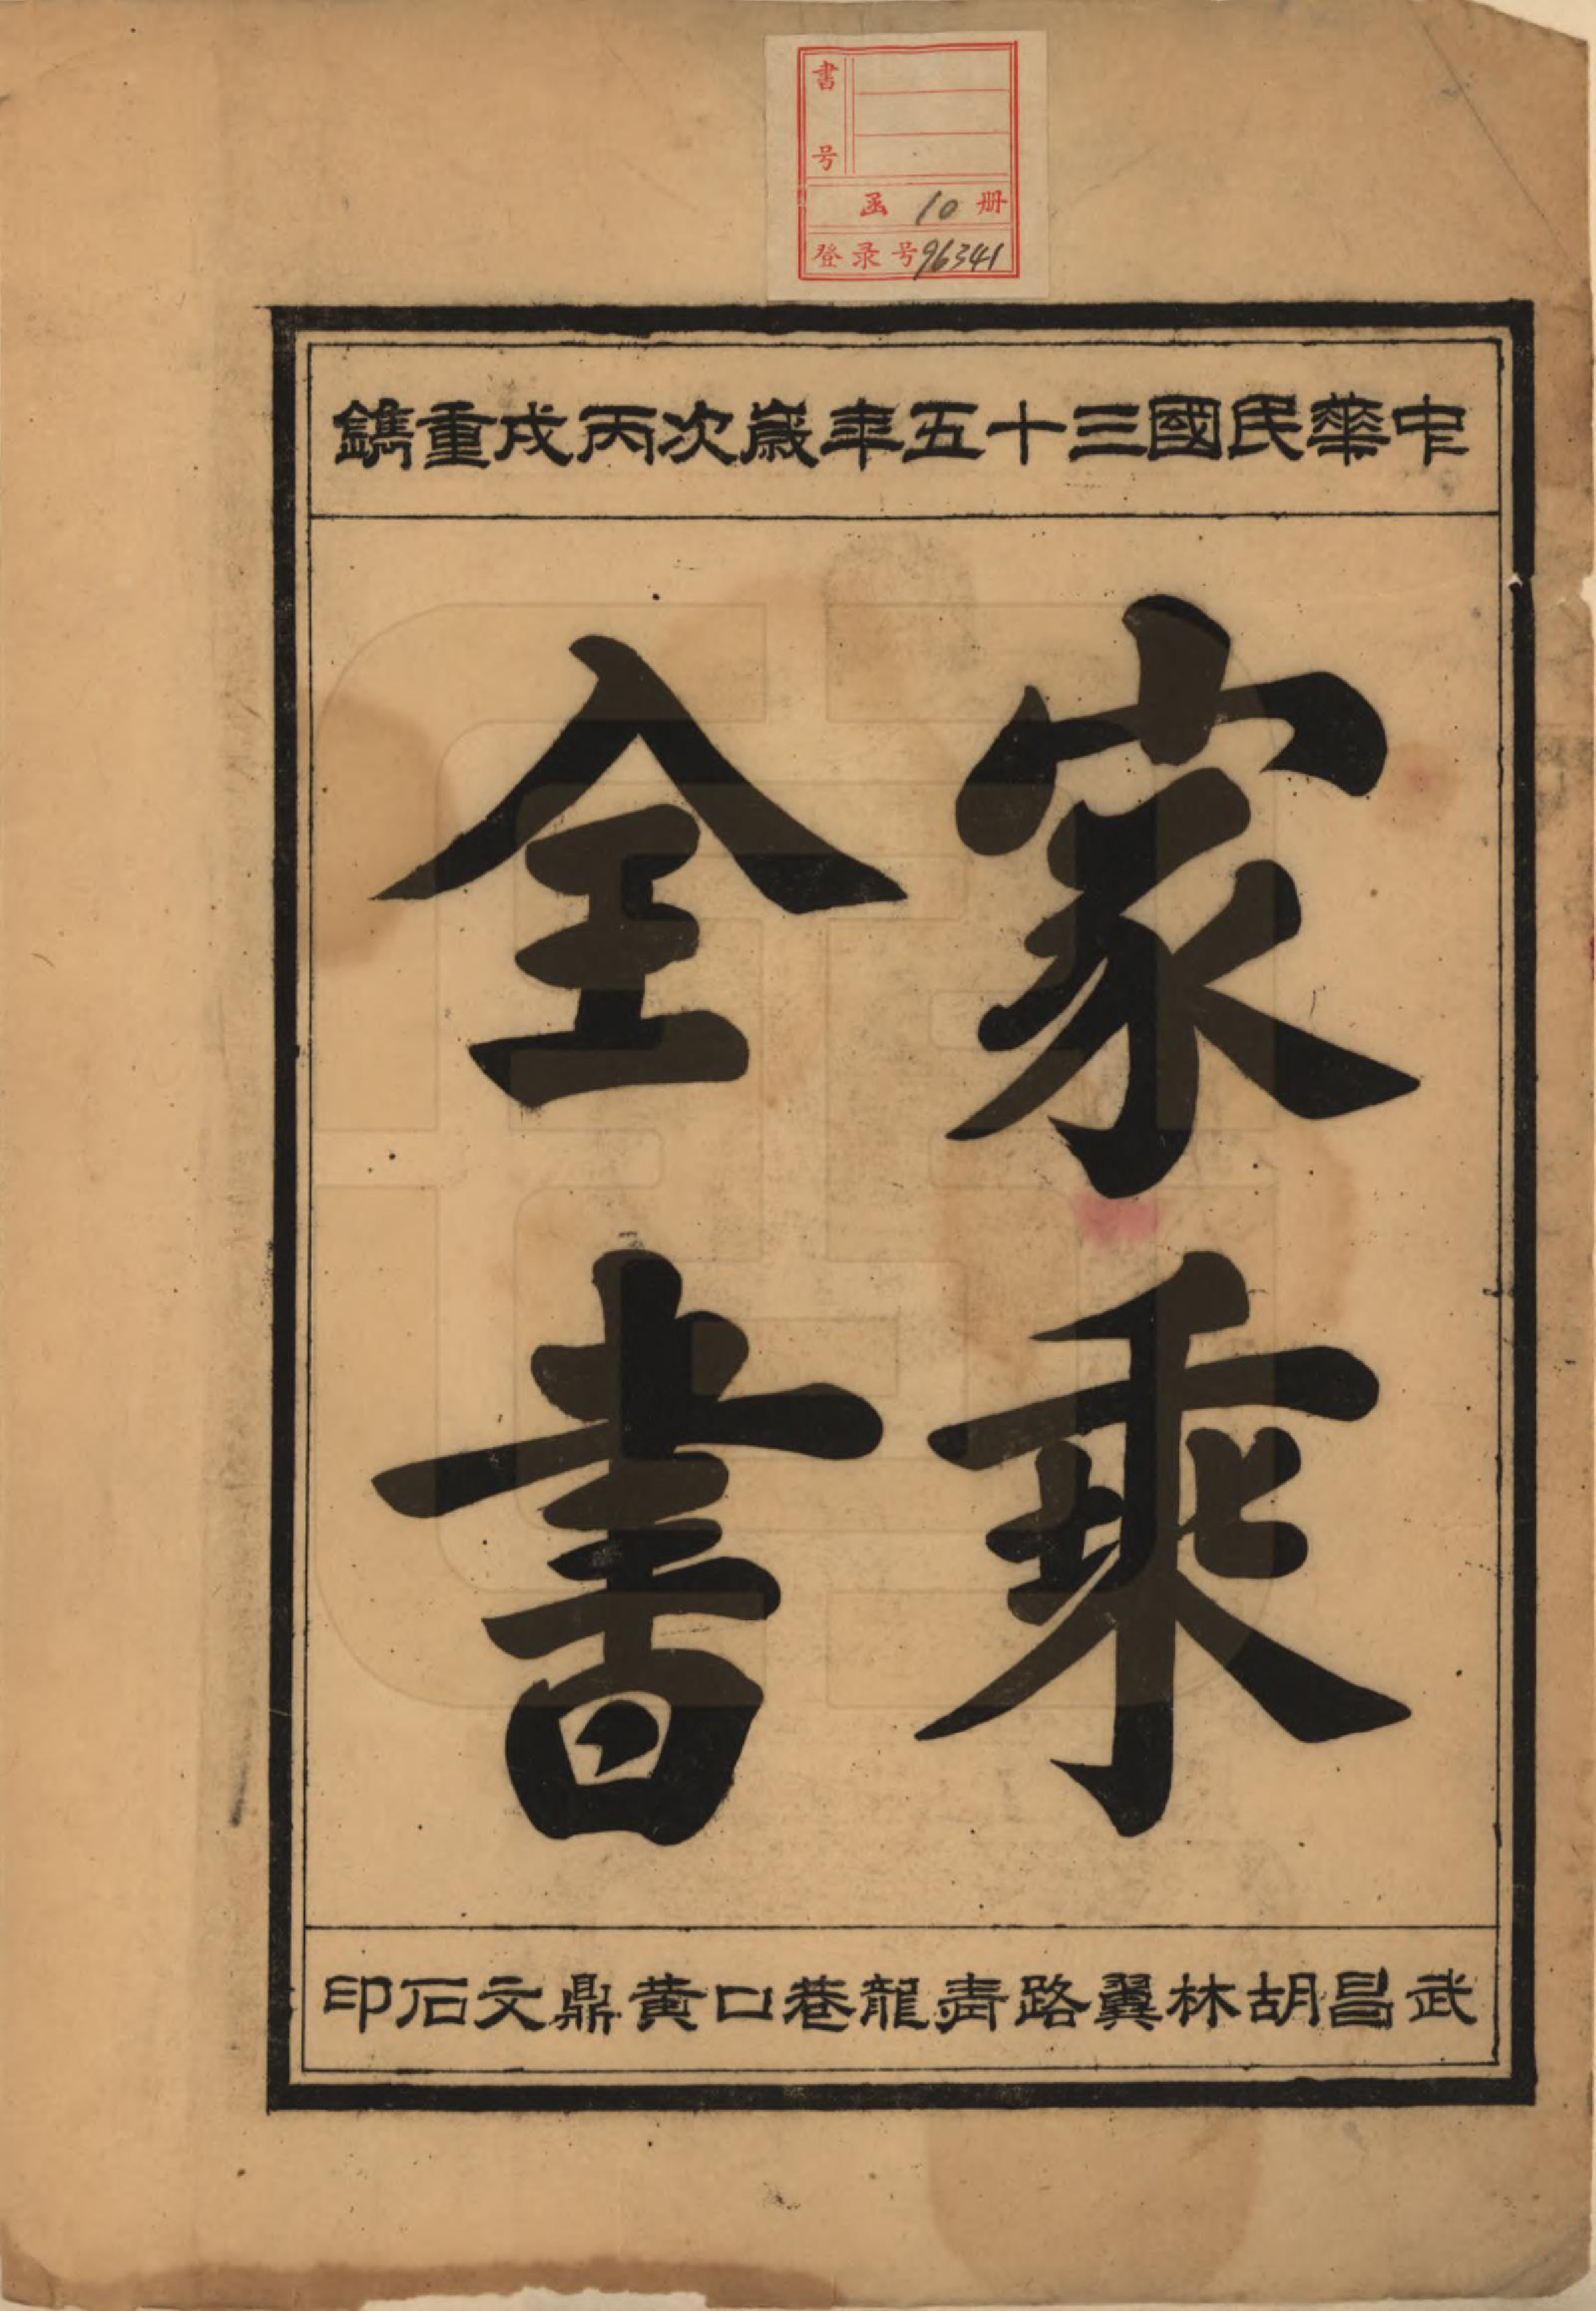 書号
函 10 册
登录号96341
中華民國三十五年歲次丙戌重鐫
家乘
全書
武昌胡林翼路青龍巷口黄鼎文石印